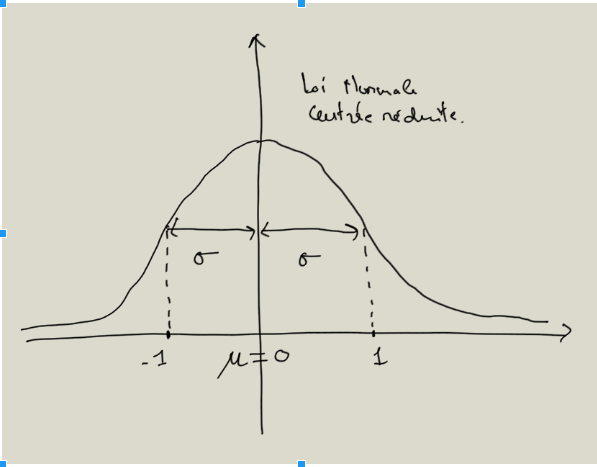 Loi Normale
Centrée réduite.
σ σ
-1 μ=0 1